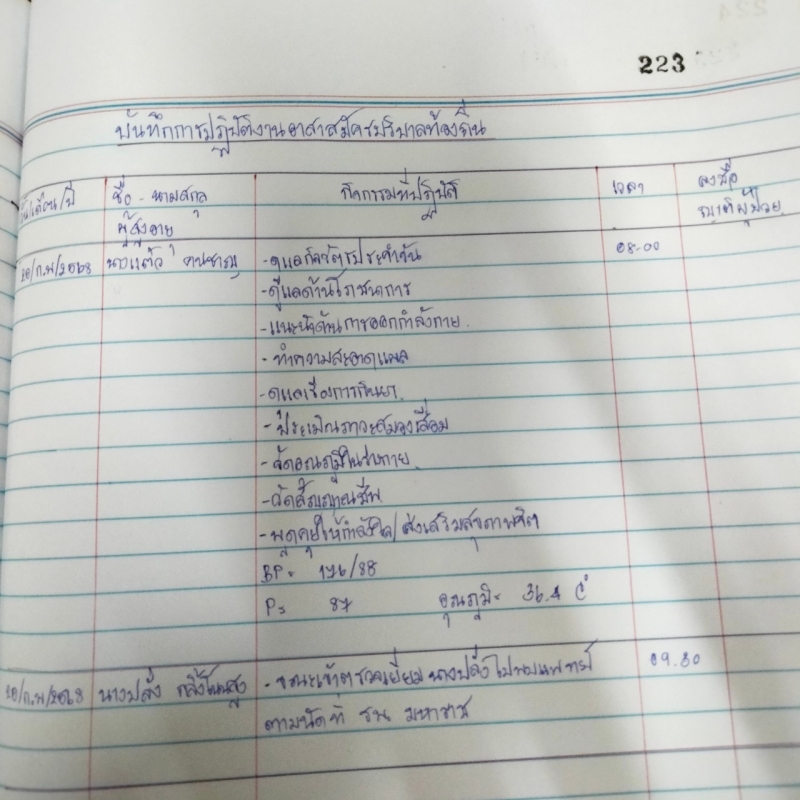 223
บันทึกการปฏิบัติงานอาสาสมัครบริบาลท้องถิ่น
วัน/เดือน/ปี ชื่อ - นามสกุล กิจกรรมที่ปฏิบัติ เวลา ลงชื่อ
ผู้สูงอายุ ญาติผู้ป่วย
20/ก.พ/2568 นางแต๋ว - ดูแลกิจวัตรประจำวัน 08.00
- ดูแลด้านโภชนาการ
- แนะนำด้านการออกกำลังกาย
- ทำความสะอาดแผล
- ดูแลเรื่องการกินยา
- ประเมินภาวะสมองเสื่อม
- วัดอุณภูมิในร่างกาย
- วัดสัญญาณชีพ
- พูดคุยให้กำลังใจ/ส่งเสริมสุขภาพจิต
BP = 176/88
P = 87 อุณภูมิ = 36.4 C°
20/ก.พ/2568 นางปลั่ง - ขณะเข้าตรวจเยี่ยม นางปลั่ง ไปพบแพทย์ 09.30
ตามนัดที่ รพ มหาราช